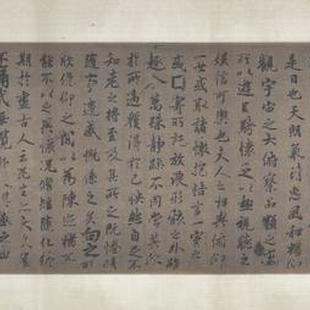 是日也天朗氣清惠風和暢仰
觀宇宙之大俯察品類之盛
所以遊目騁懷足以極視聽之
娛信可樂也夫人之相與俯仰
一世或取諸懷抱悟言一室之
或因寄所託放浪形骸之外雖
趣萬殊靜躁不同當其欣
於所遇暫得於己快然自足不
知老之將至及其所之既惓情
隨事遷感慨係之矣向之
欣俛仰之間以為陳迹猶不
能不以之興懷況脩短隨化終
期於盡古人云死生亦大矣豈
不痛哉每覽昔人興感之由